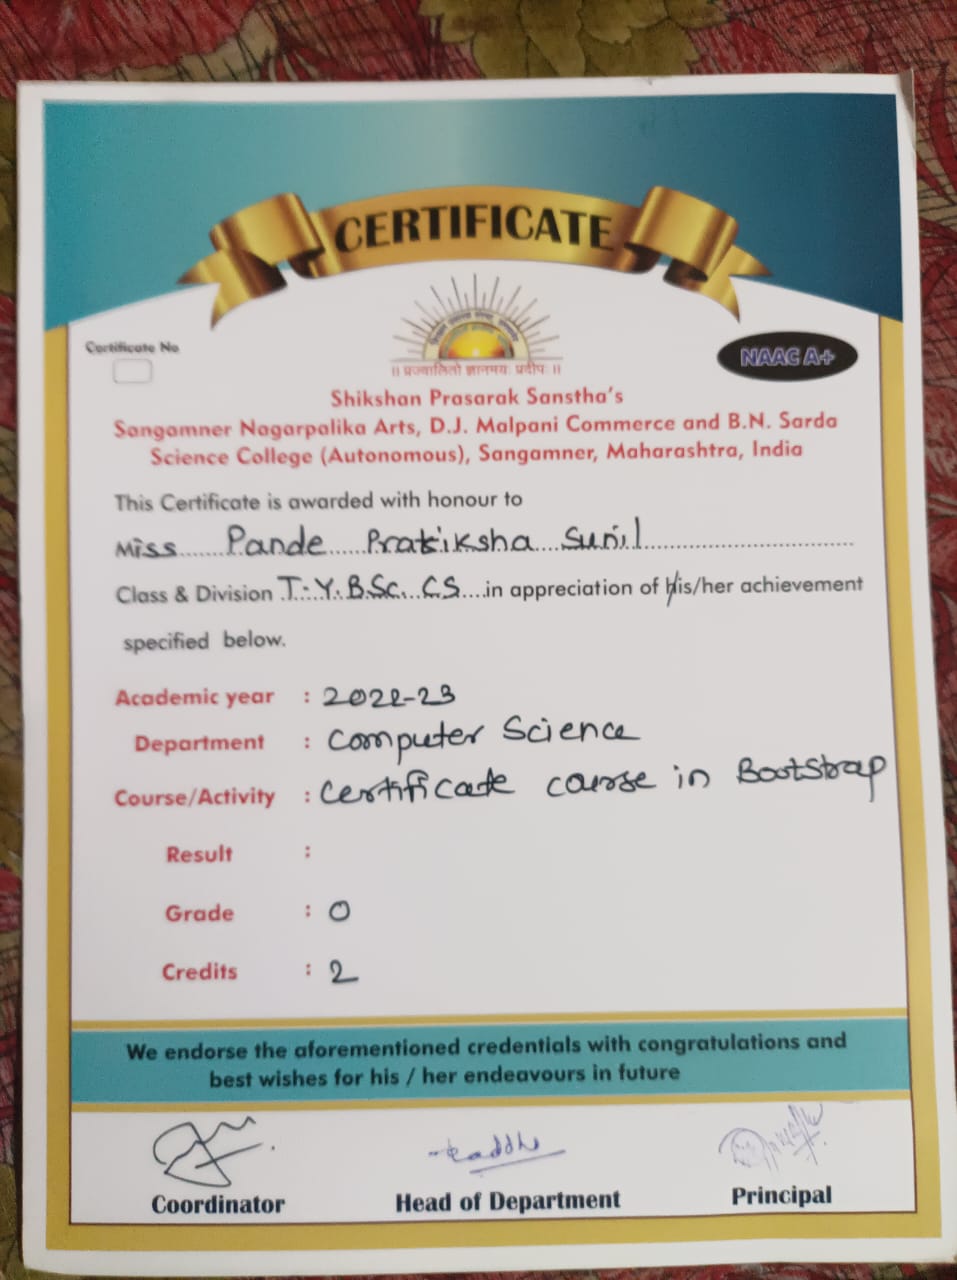 CERTIFICATE
Certificate No
NAAC A+
।। प्रज्वालितो ज्ञानमयः प्रदीपः ।।
Shikshan Prasarak Sanstha's
Sangamner Nagarpalika Arts, D.J. Malpani Commerce and B.N. Sarda
Science College (Autonomous), Sangamner, Maharashtra, India
This Certificate is awarded with honour to
Miss Pande Pratiksha Sunil
Class & Division T.Y.B.Sc. CS in appreciation of his/her achievement
specified below.
Academic year : 2022-23
Department : Computer Science
Course/Activity : Certificate course in Bootstrap
Result :
Grade : O
Credits : 2
We endorse the aforementioned credentials with congratulations and
best wishes for his / her endeavours in future
Coordinator Head of Department Principal